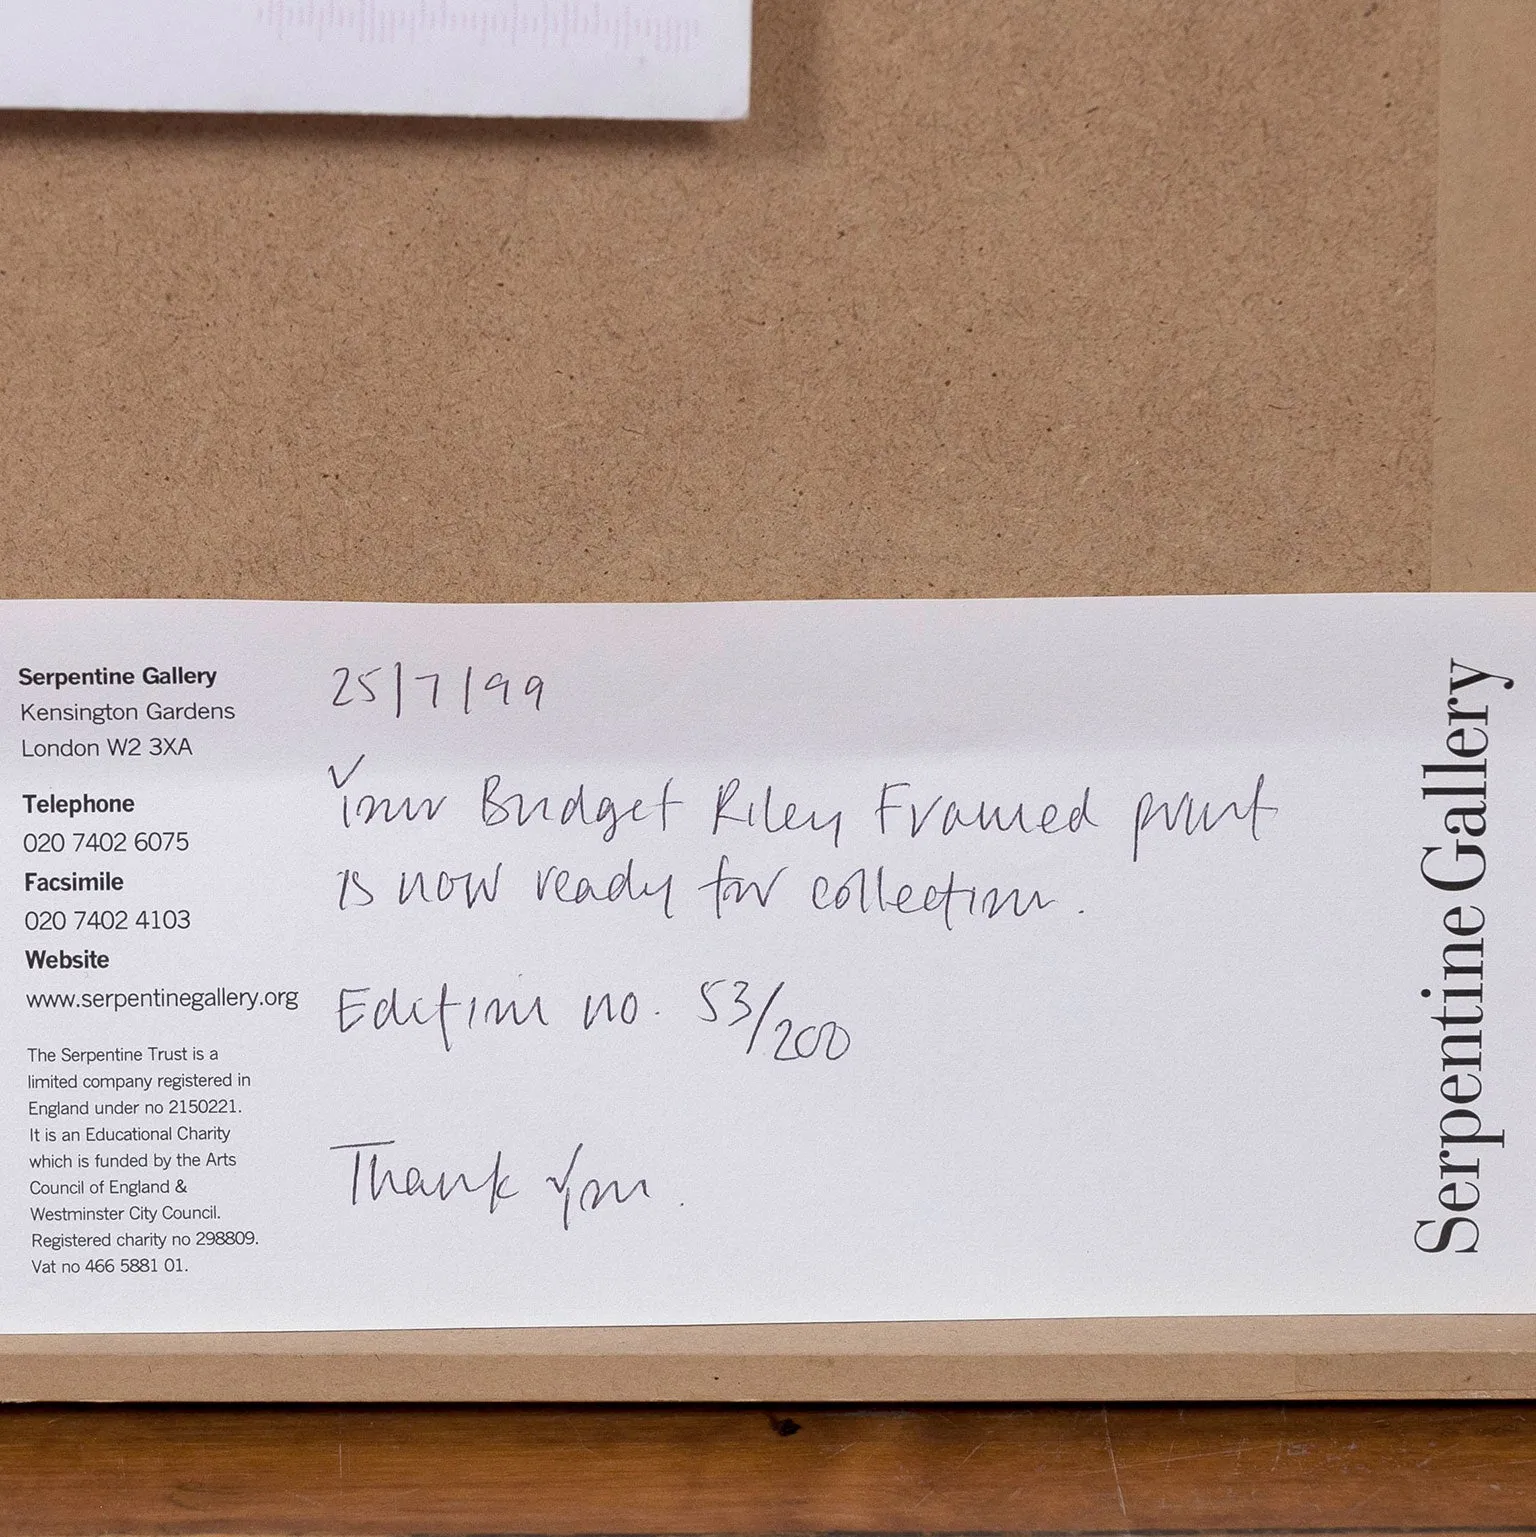 Serpentine Gallery
Kensington Gardens
London W2 3XA
Telephone
020 7402 6075
Facsimile
020 7402 4103
Website
www.serpentinegallery.org
The Serpentine Trust is a
limited company registered in
England under no 2150221.
It is an Educational Charity
which is funded by the Arts
Council of England &
Westminster City Council.
Registered charity no 298809.
Vat no 466 5881 01.
25/7/99
Your Bridget Riley Framed print
is now ready for collection.
Edition no. 53/200
Thank you.
Serpentine Gallery